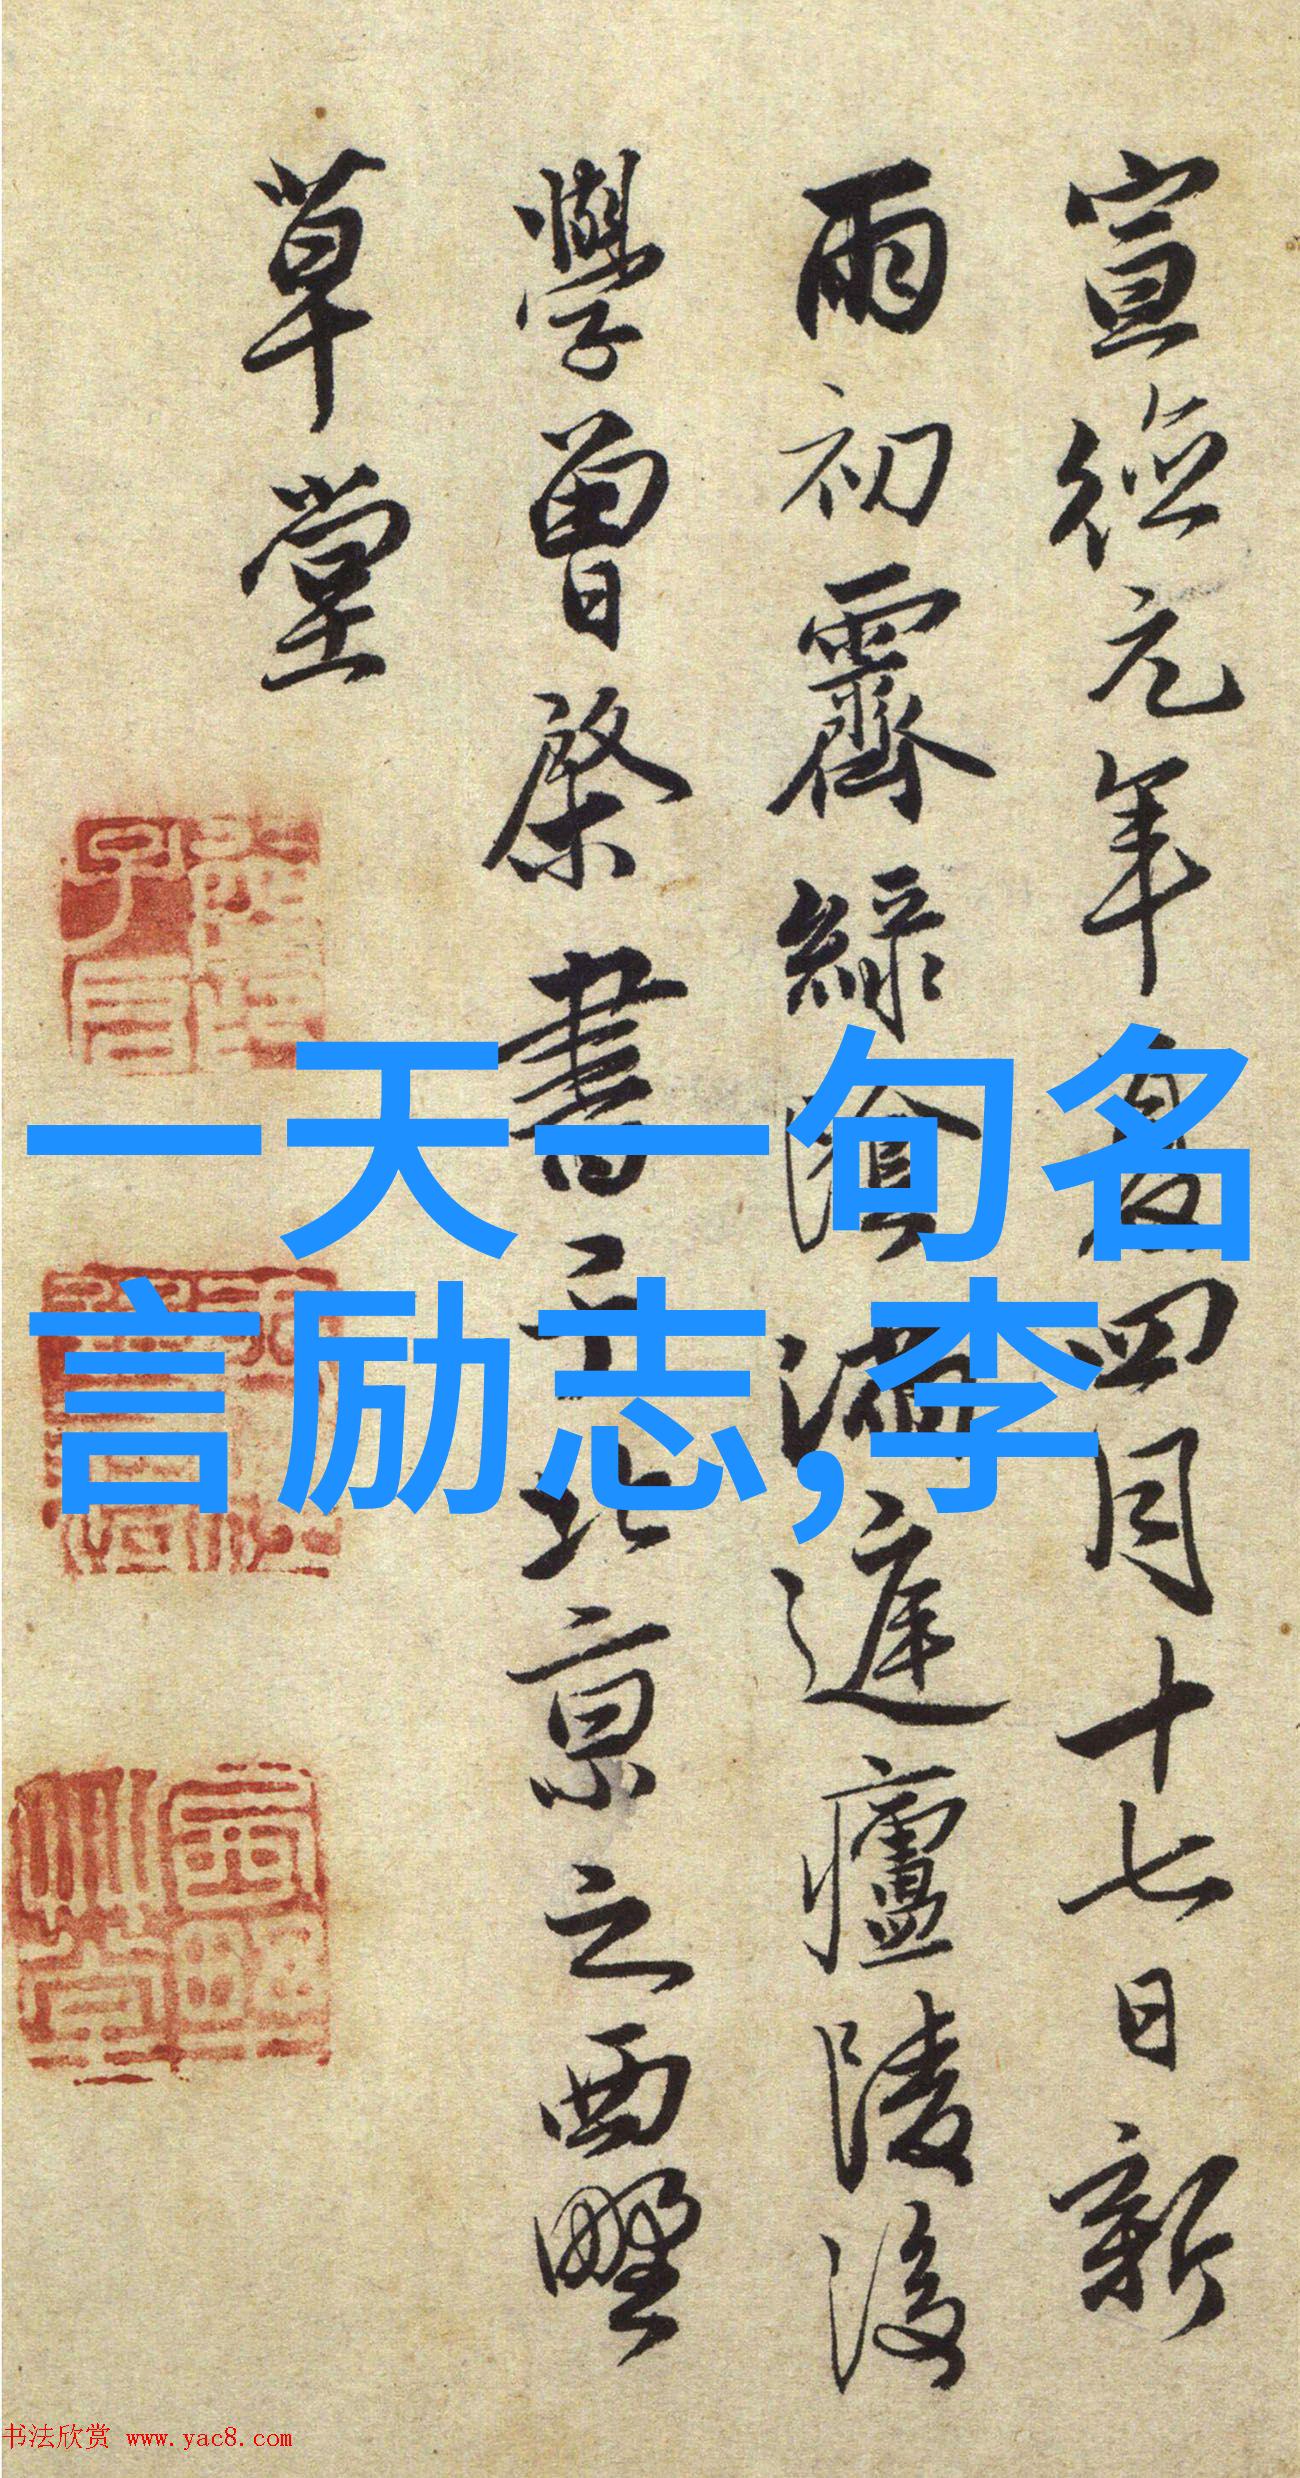 宣德元年夏四月十七日新
雨初霽綠陰滿庭廬陵後
學曾棨書于北京之西墅
草堂
一天一句名
言励志,李
书法欣赏 www.yac8.com